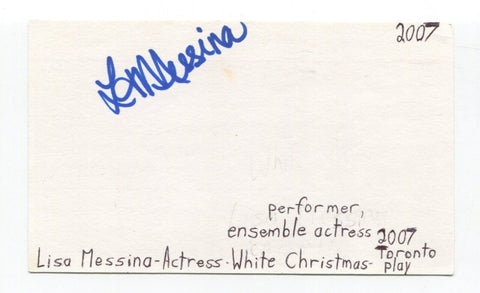 2007
L Messina
performer,
ensemble actress 2007
Lisa Messina-Actress-White Christmas- Toronto
play